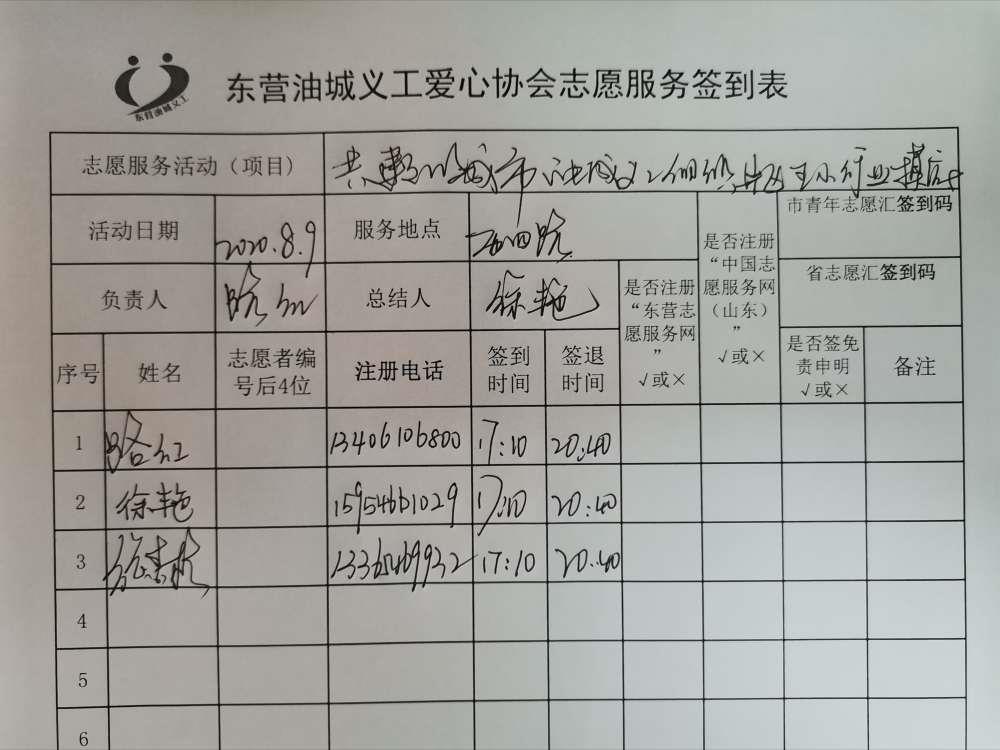 东营油城义工
东营油城义工爱心协会志愿服务签到表
志愿服务活动（项目）
活动日期 2020.8.9 服务地点
市青年志愿汇签到码
负责人 路红 总结人 徐艳
是否注册“东营志愿服务网” √或×
是否注册“中国志愿服务网（山东）” √或×
省志愿汇签到码
序号 姓名 志愿者编号后4位 注册电话 签到时间 签退时间 是否签免责申明 √或× 备注
1 路红 13406106800 17:10 20:40
2 徐艳 15954661029 17:10 20:40
3 13365469932 17:10 20:40
4
5
6